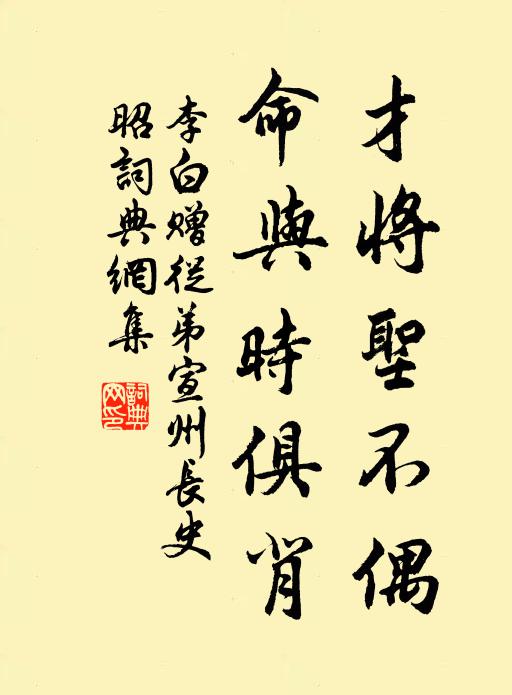 才將聖不偶
命與時俱背
李白贈從弟宣州長史
昭詞典網集
詞典
网印